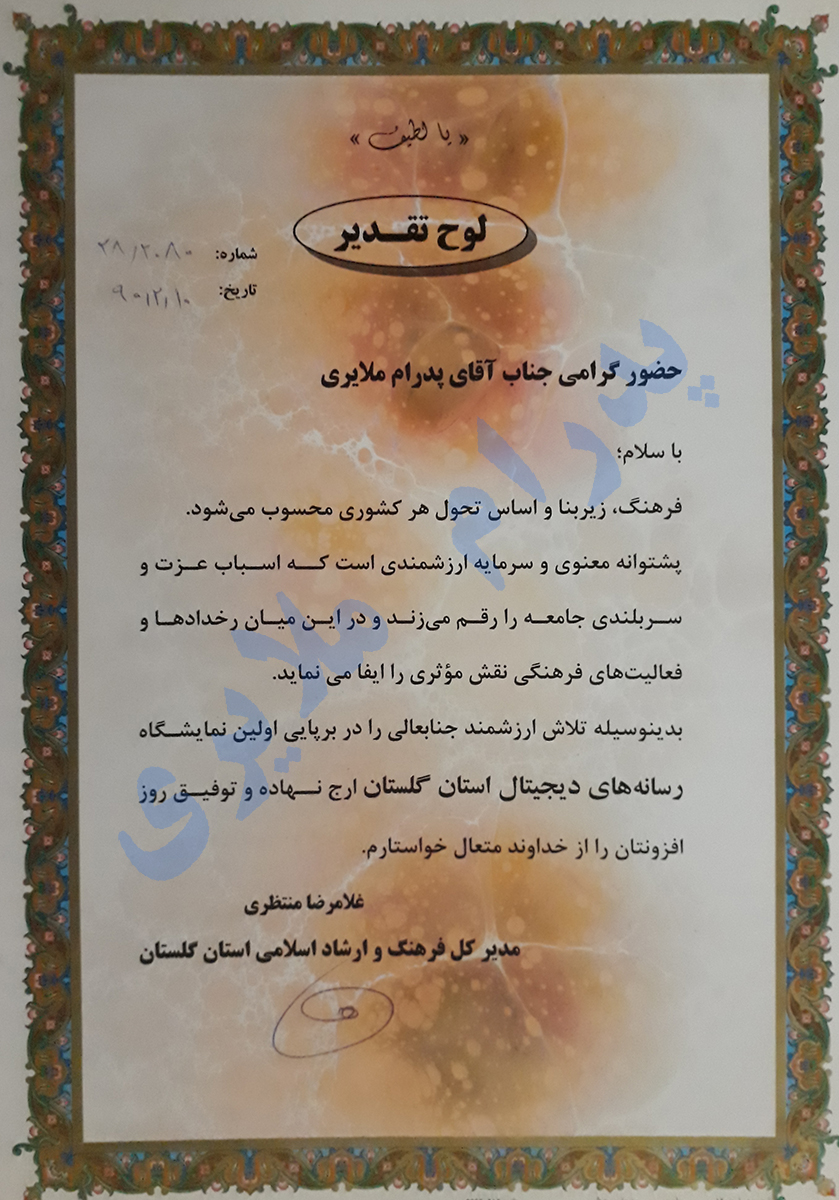 « یا لطیف »
لوح تقدیر
شماره: ۲۸/۲۰۸۰
تاریخ: ۹۰/۲/۱۰
حضور گرامی جناب آقای پدرام ملایری
با سلام؛
فرهنگ، زیربنا و اساس تحول هر کشوری محسوب می‌شود.
پشتوانه معنوی و سرمایه ارزشمندی است که اسباب عزت و
سربلندی جامعه را رقم می‌زند و در این میان رخدادها و
فعالیت‌های فرهنگی نقش مؤثری را ایفا می نماید.
بدینوسیله تلاش ارزشمند جنابعالی را در برپایی اولین نمایشگاه
رسانه‌های دیجیتال استان گلستان ارج نهاده و توفیق روز
افزونتان را از خداوند متعال خواستارم.
غلامرضا منتظری
مدیر کل فرهنگ و ارشاد اسلامی استان گلستان
پدرام ملایری